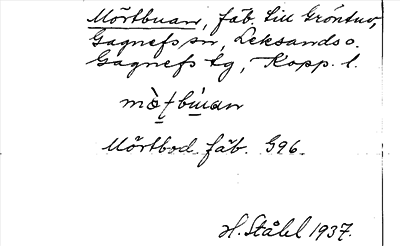 Mörtbuan, fäb. till Gröntuv,
Gagnefs sn, Leksands o.
Gagnefs tg, Kopp. l.
Mörtbod fäb. G96.
H. Ståhl 1937.